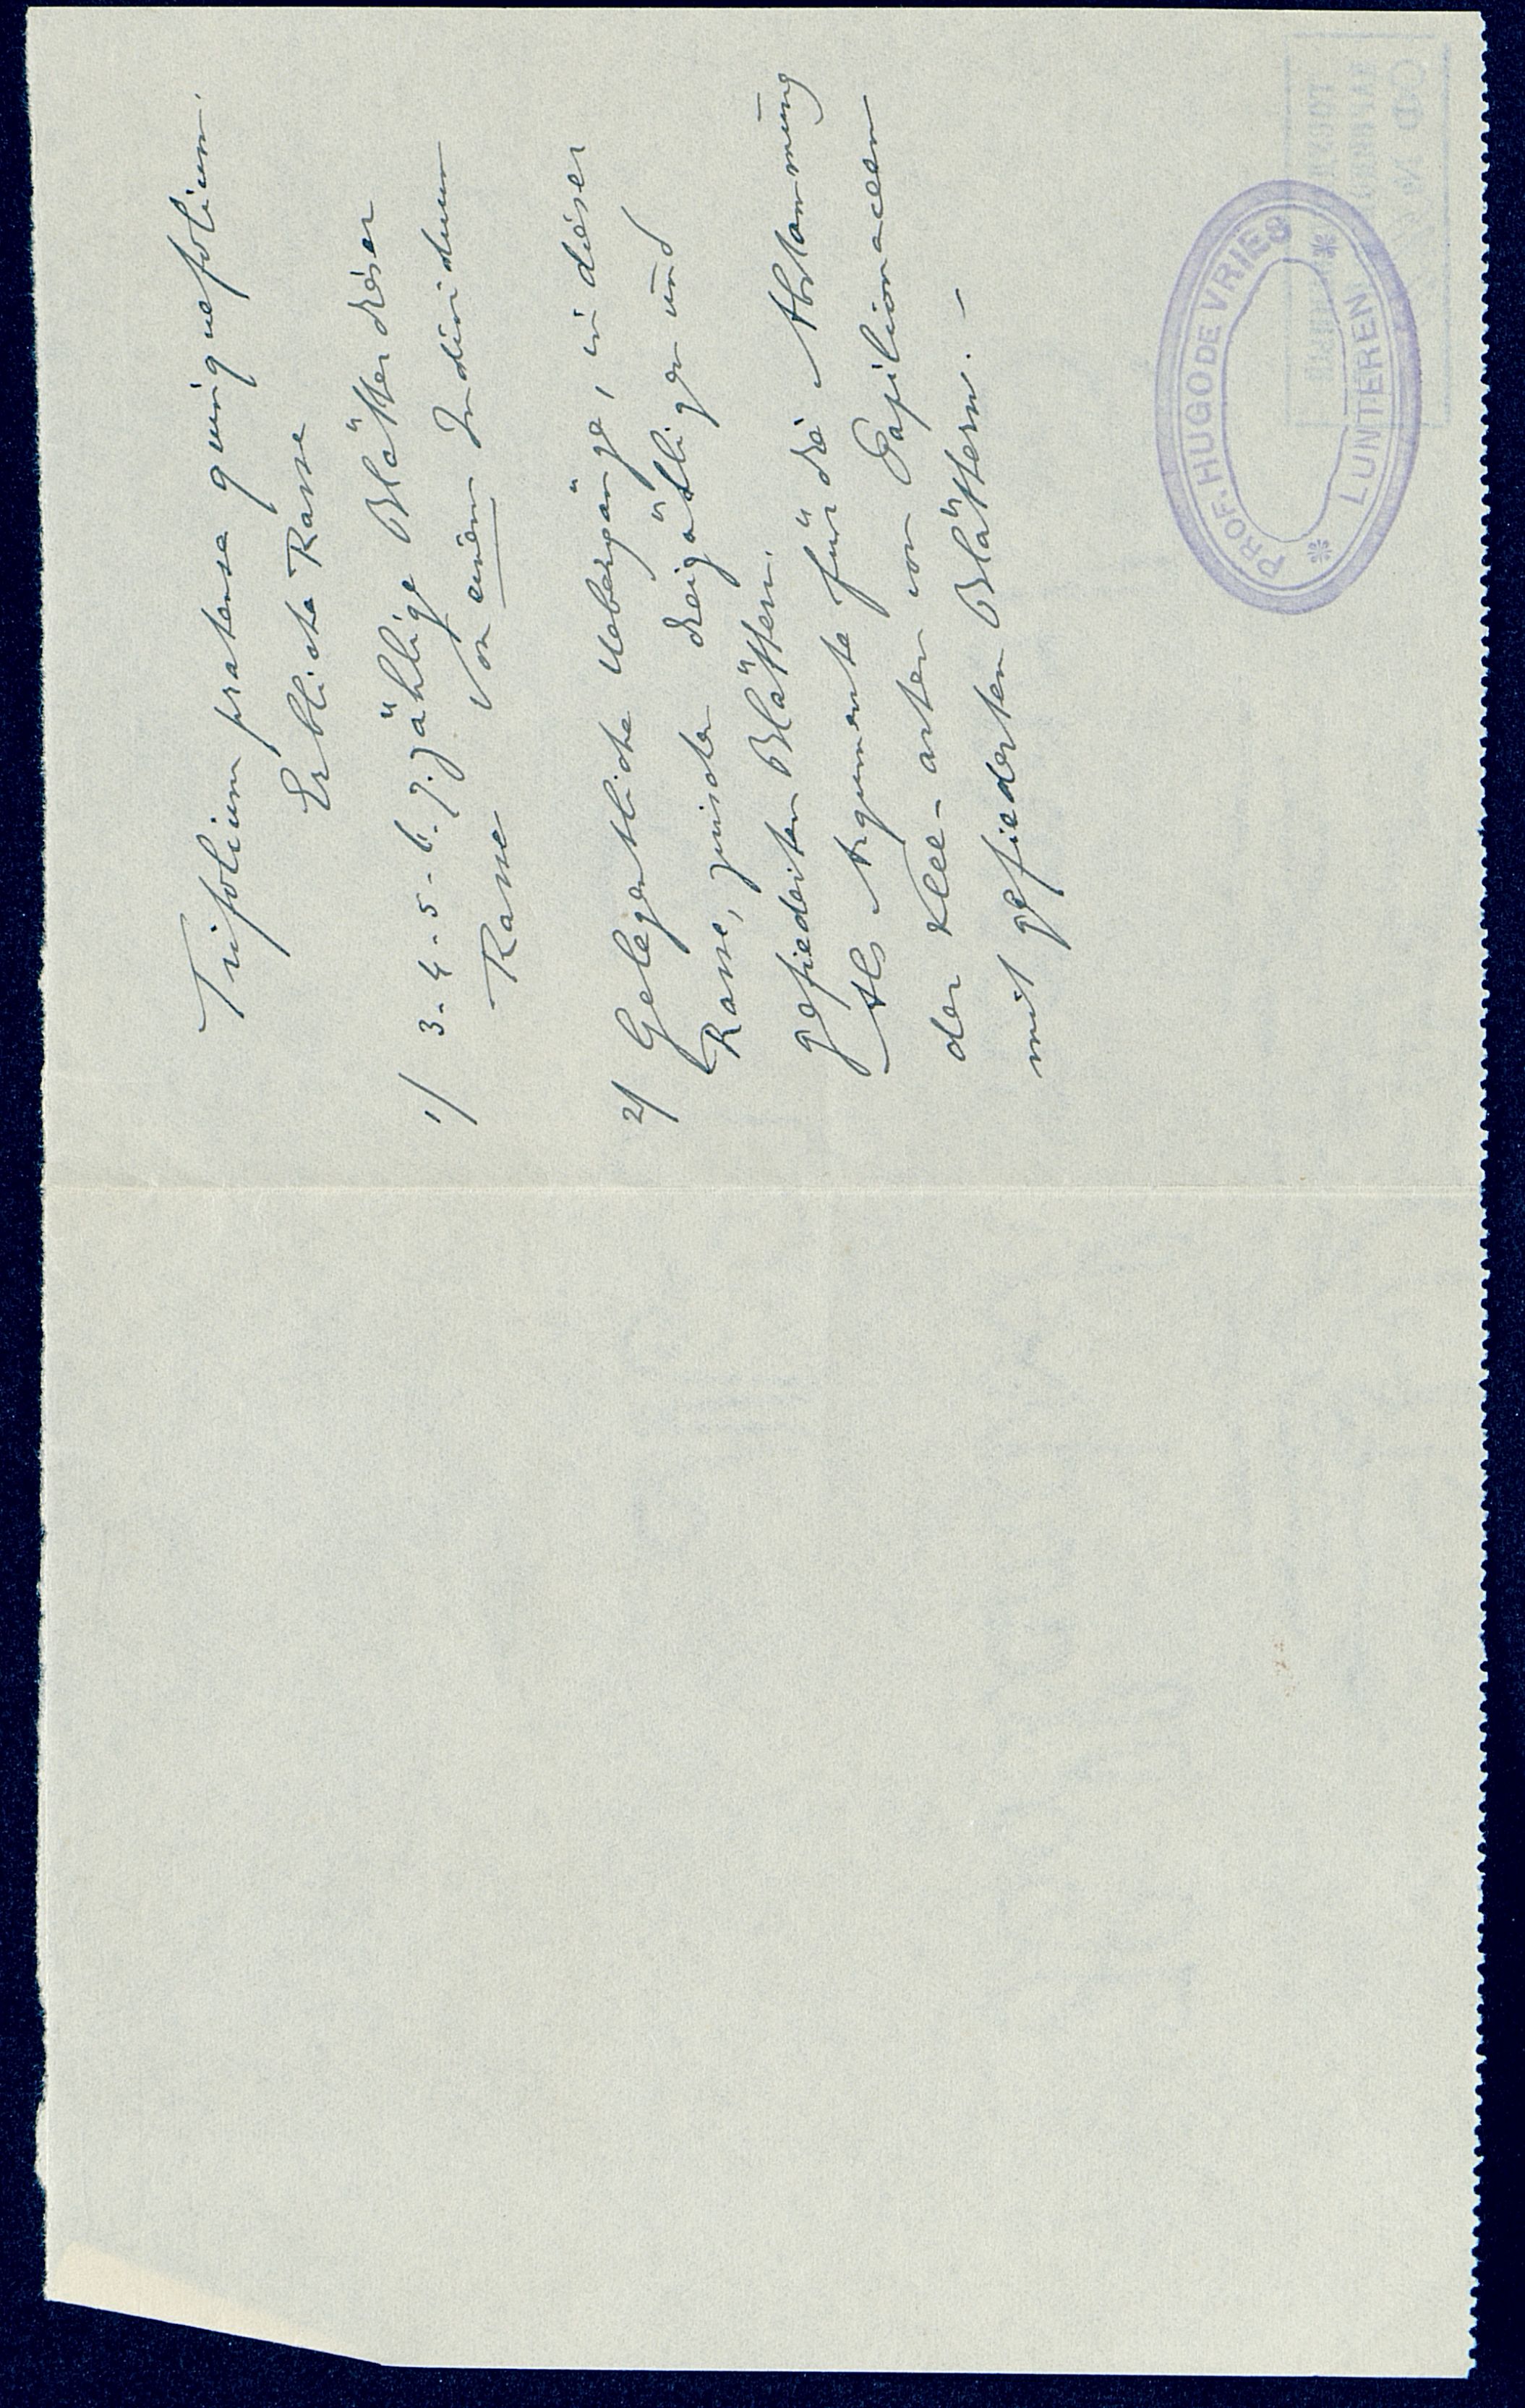 Trifolium pratense quinquefolium.
Erbliche Rasse
1/ 3-4-5-6-7-zählige Blätter dieser
Rasse von einem Individuum
2/ Gelegentliche Uebergänge, in dieser
Rasse, zwischen dreizähligen und
gefiederten Blättern.
Als Argumente für die Abstammung
der Klee-arten von Papilionaceen
mit gefiederten Blättern. –
PROF. HUGO DE VRIES
* LUNTEREN *